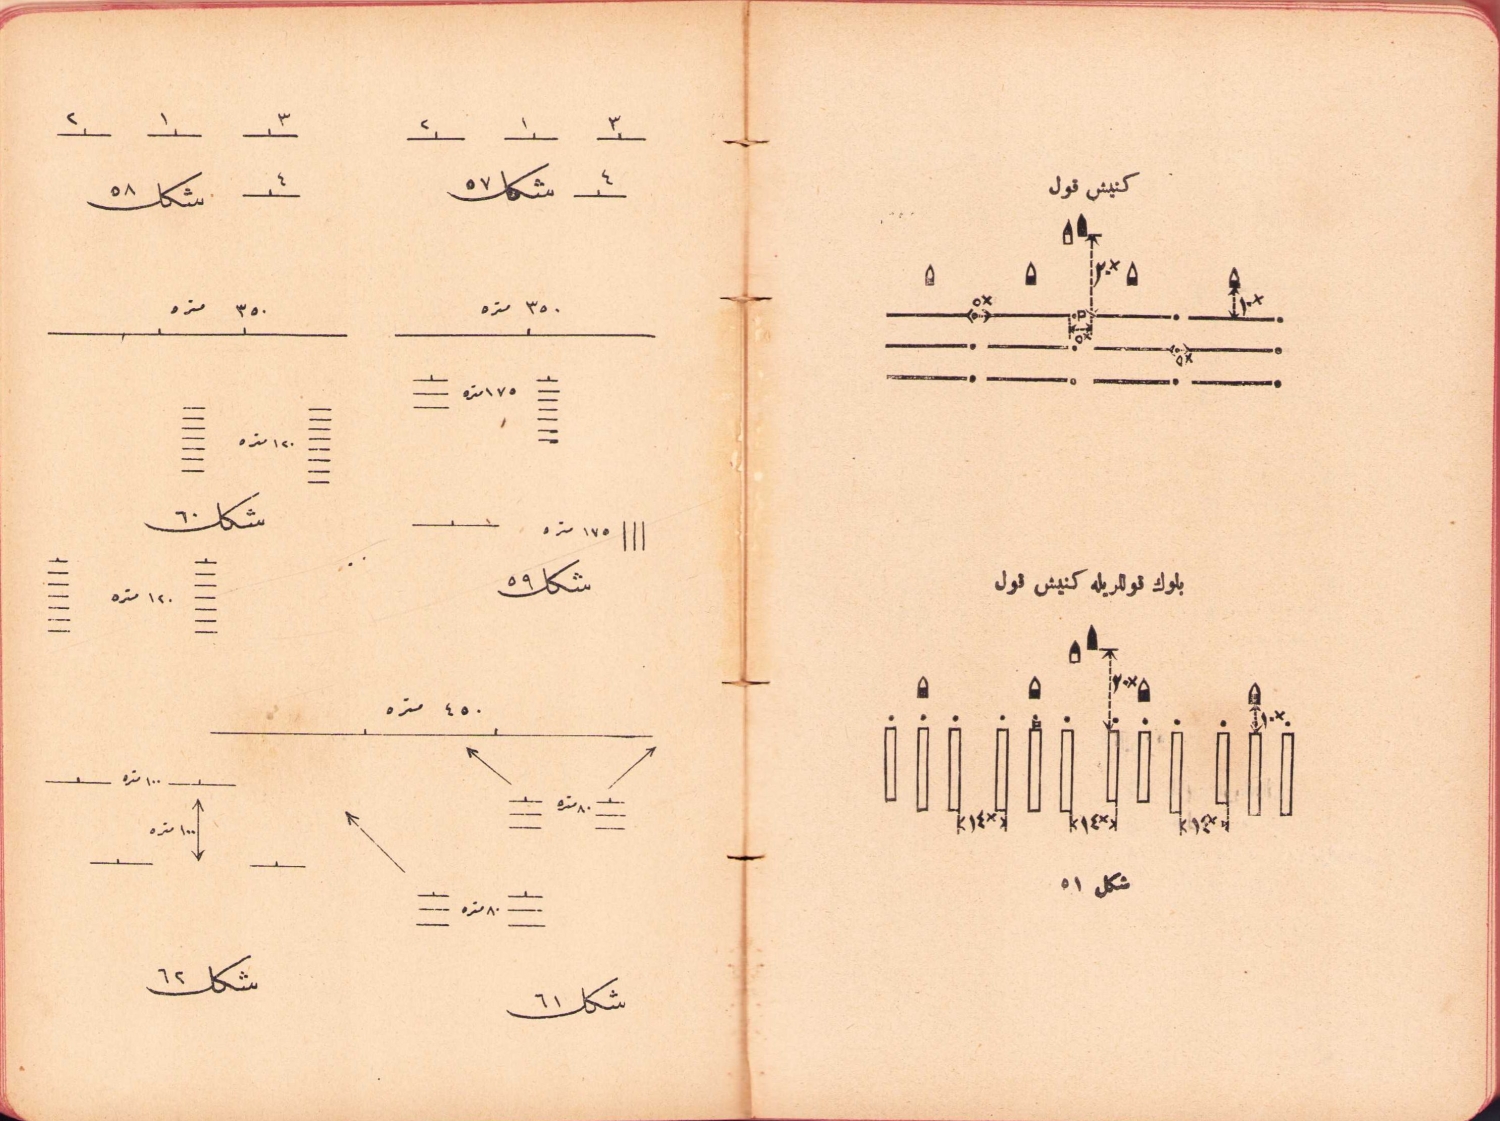 كنيش قول
٢٠×
١٠×
٥×
P
٥×
٥×
بلوك قوللريله كنيش قول
٢٠×
١٠×
P
١٤× ١٤× ١٤×
شكل ٥١
٣ ١ ٢
٤ شكل ٥٧
٣ ١ ٢
٤ شكل ٥٨
٣٥٠ متره
١٧٥ متره
١٧٥ متره
شكل ٥٩
٣٥٠ متره
١٢٠ متره
شكل ٦٠
١٢٠ متره
٤٥٠ متره
٨٠ متره
٨٠ متره
شكل ٦١
١٠٠ متره
١٠٠ متره
شكل ٦٢